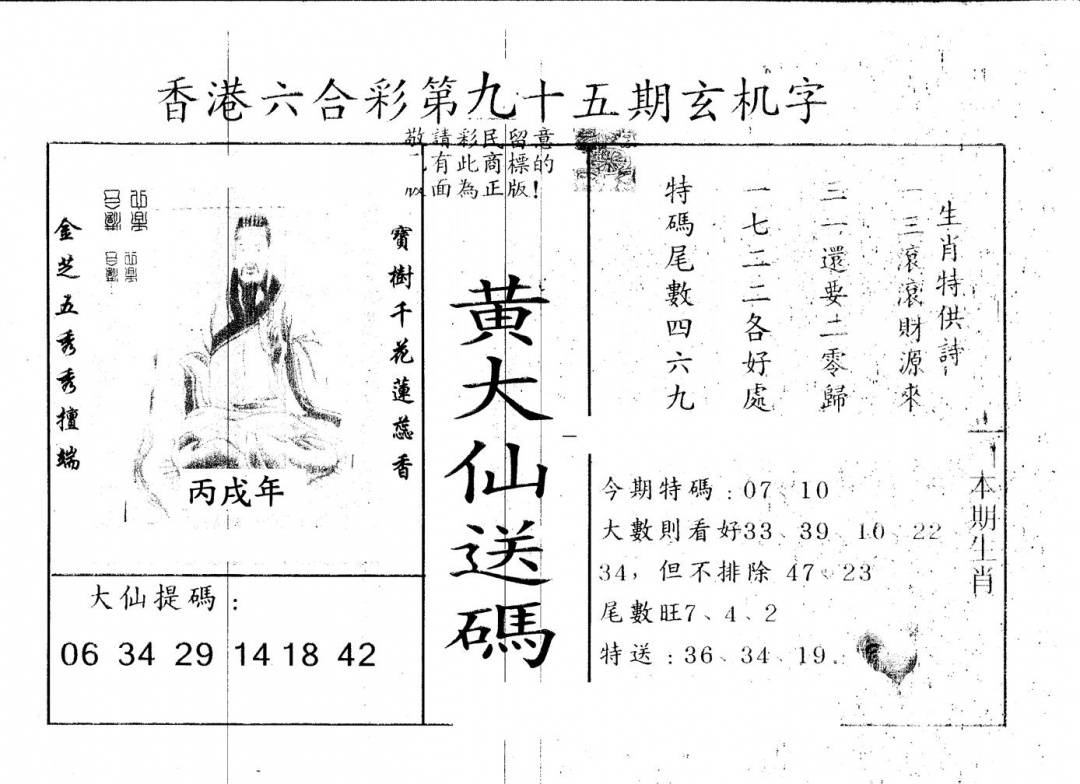 香港六合彩第九十五期玄机字
敬請彩民留意
有此商標的
面為正版!
生肖特供詩
一三滾滾財源來
三一還要二零歸
一七二二各好處
特碼尾數四六九
黄大仙送碼
寶樹千花蓮蕊香
金芝五秀秀擅端
丙戌年
大仙提碼:
06 34 29 14 18 42
本期生肖
今期特碼:07、10
大數則看好33、39、10、22
34,但不排除 47、23
尾數旺7、4、2
特送:36、34、19.